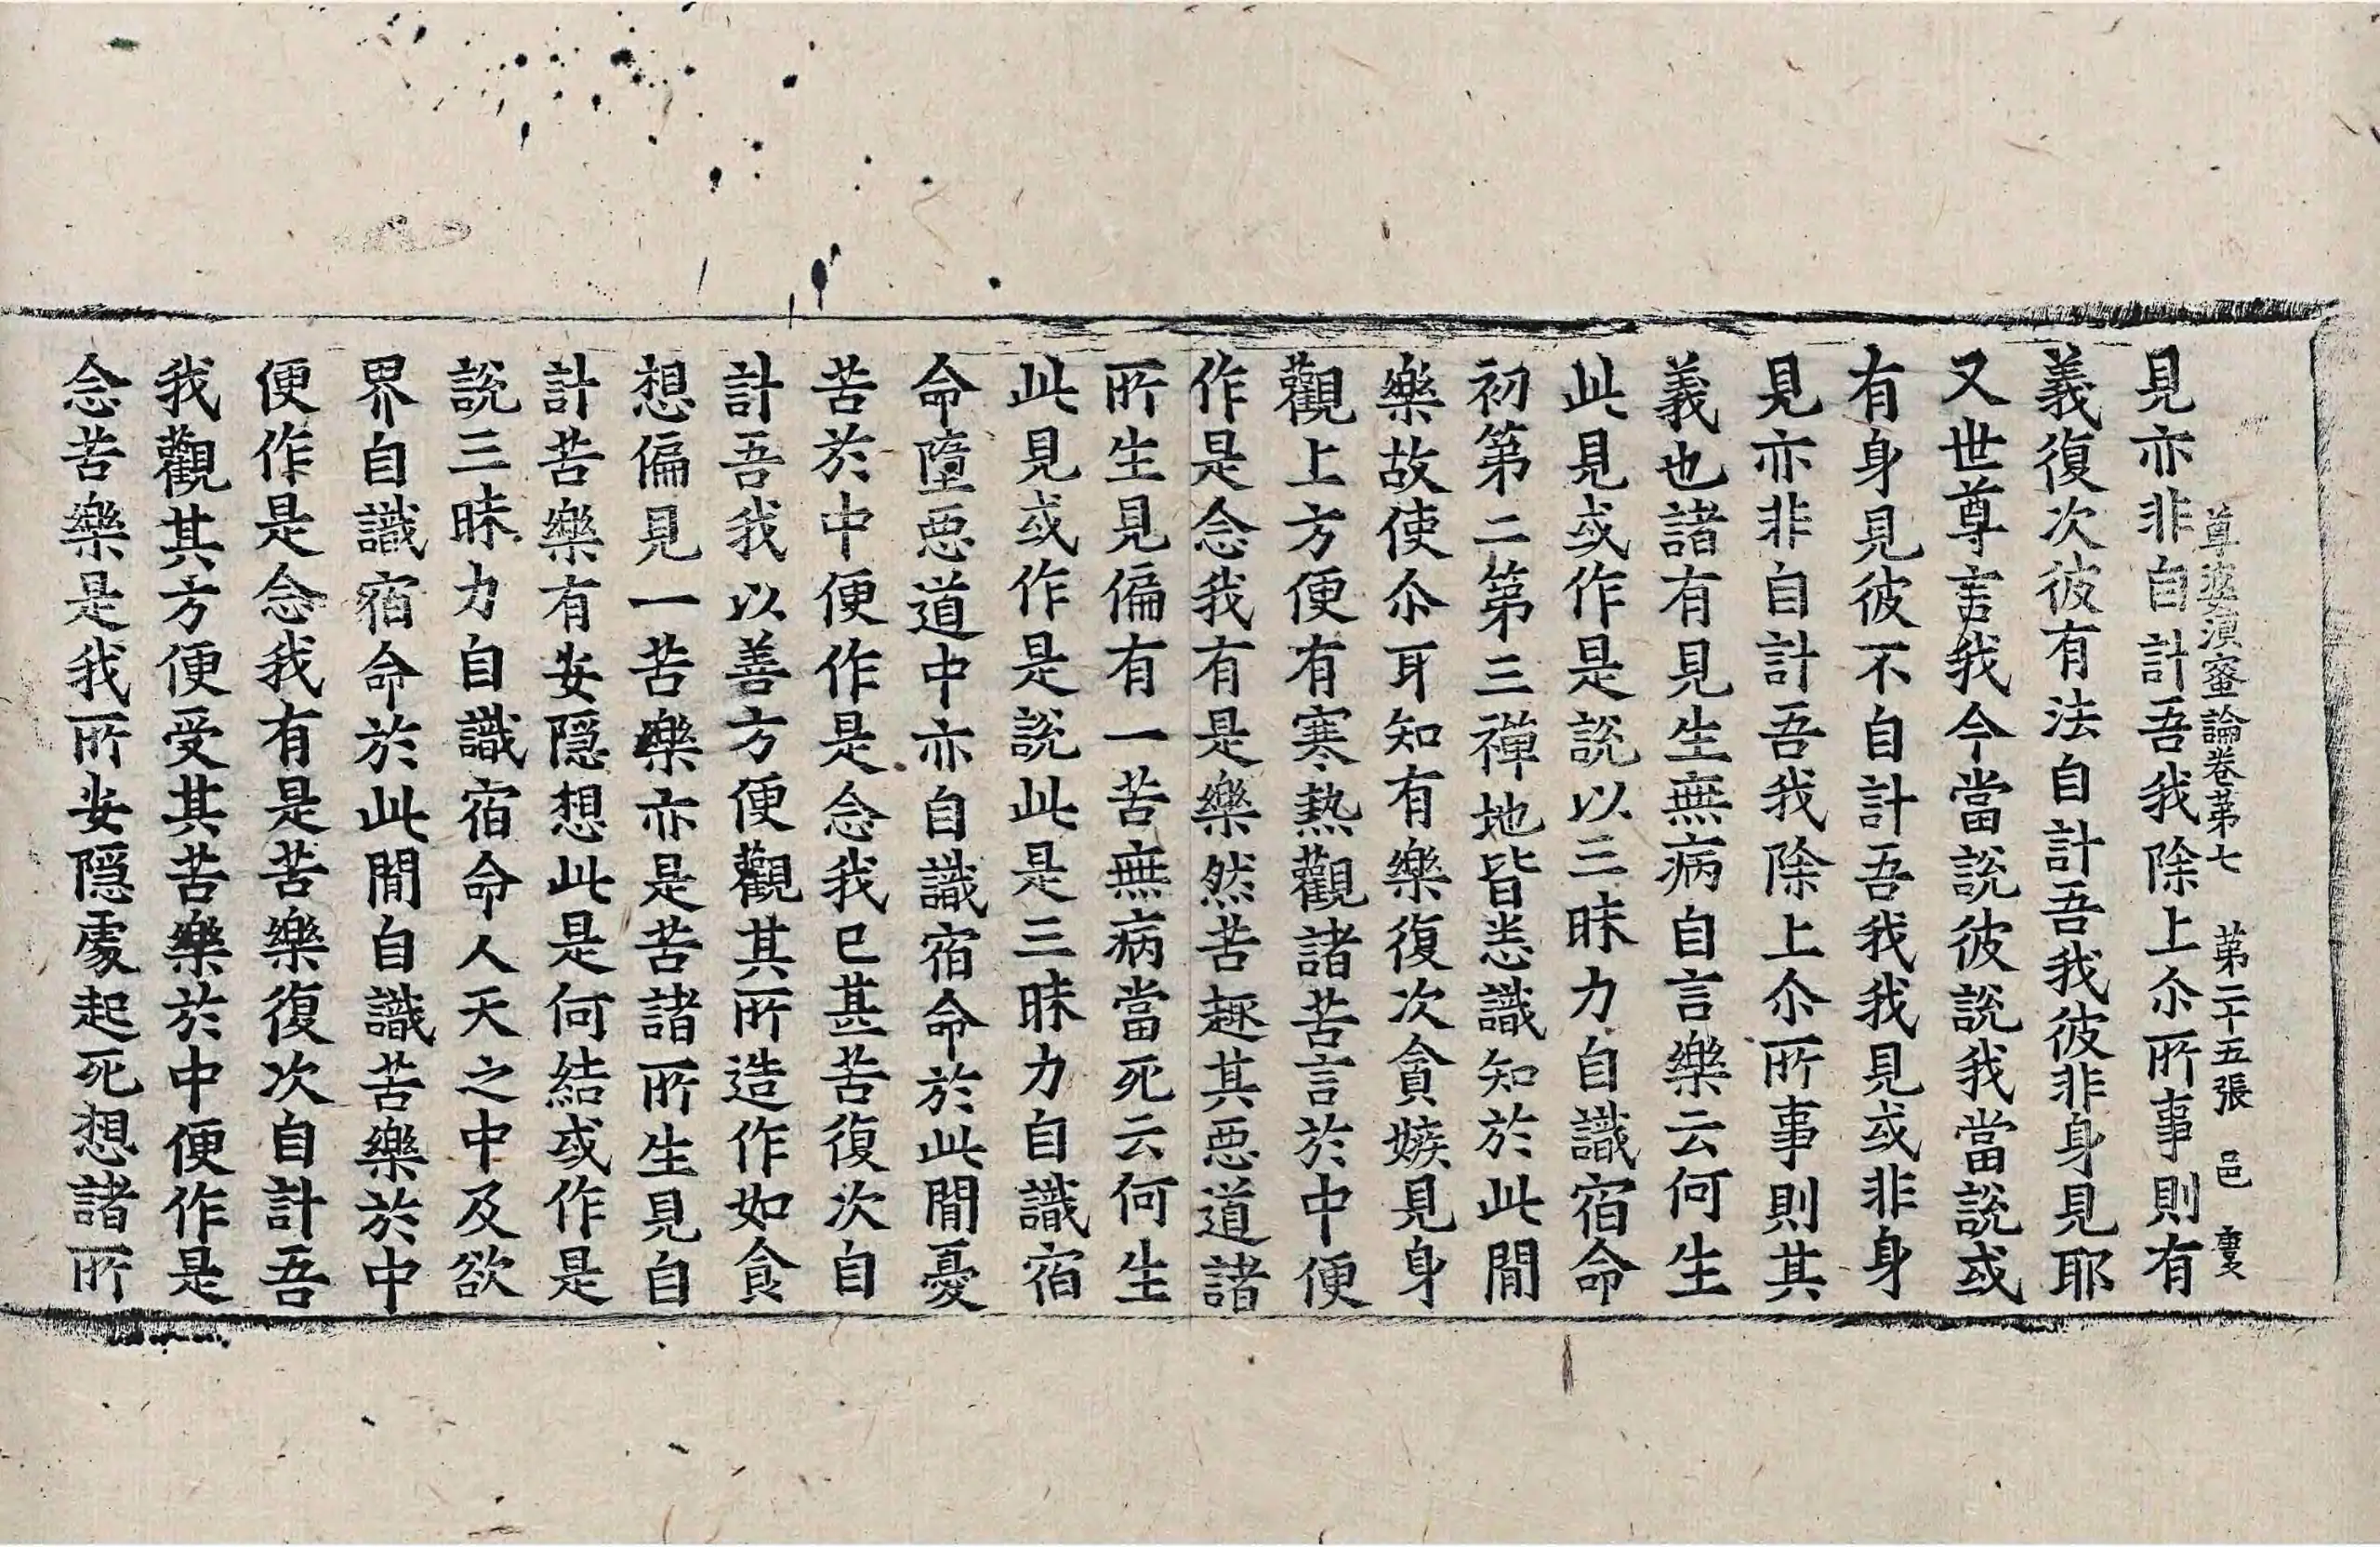 尊婆湏蜜論卷苐七　苐二十五張　邑
見亦非自計吾我除上尒所事則有
義復次彼有法自計吾我彼非身見耶
又世尊言我今當說彼說我當說或
有身見彼不自計吾我我見或非身
見亦非自計吾我除上尒所事則其
義也諸有見生無病自言樂云何生
此見或作是說以三昧力自識宿命
初第二第三禪地皆悉識知於此閒
樂故使尒耳知有樂復次貪嫉見身
觀上方便有寒熱觀諸苦言於中便
作是念我有是樂然苦趣其惡道諸
所生見偏有一苦無病當死云何生
此見或作是說此是三昧力自識宿
命墮惡道中亦自識宿命於此閒憂
苦於中便作是念我已甚苦復次自
計吾我以善方便觀其所造作如貪
想偏見一苦樂亦是苦諸所生見自
計苦樂有安隱想此是何結或作是
說三昧力自識宿命人天之中及欲
界自識宿命於此閒自識苦樂於中
便作是念我有是苦樂復次自計吾
我觀其方便受其苦樂於中便作是
念苦樂是我所安隱處起死想諸所